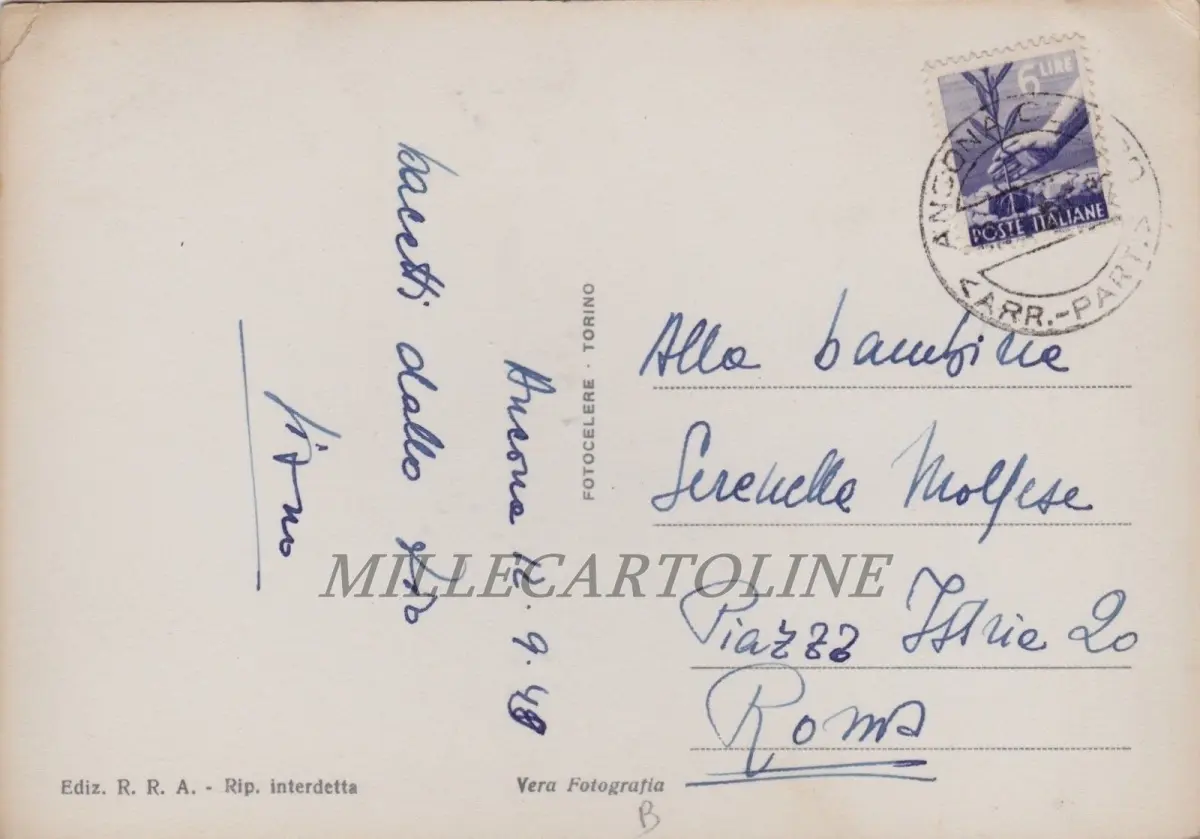 6 LIRE
POSTE ITALIANE
ANCONA
<ARR.-PART.>
Ancona 12. 9. 48
bacetti dallo zio
FOTOCELERE · TORINO
Alla bambina
Serenella Molfese
Piazza Istria 20
Roma
MILLECARTOLINE
Ediz. R. R. A. - Rip. interdetta
Vera Fotografia
B